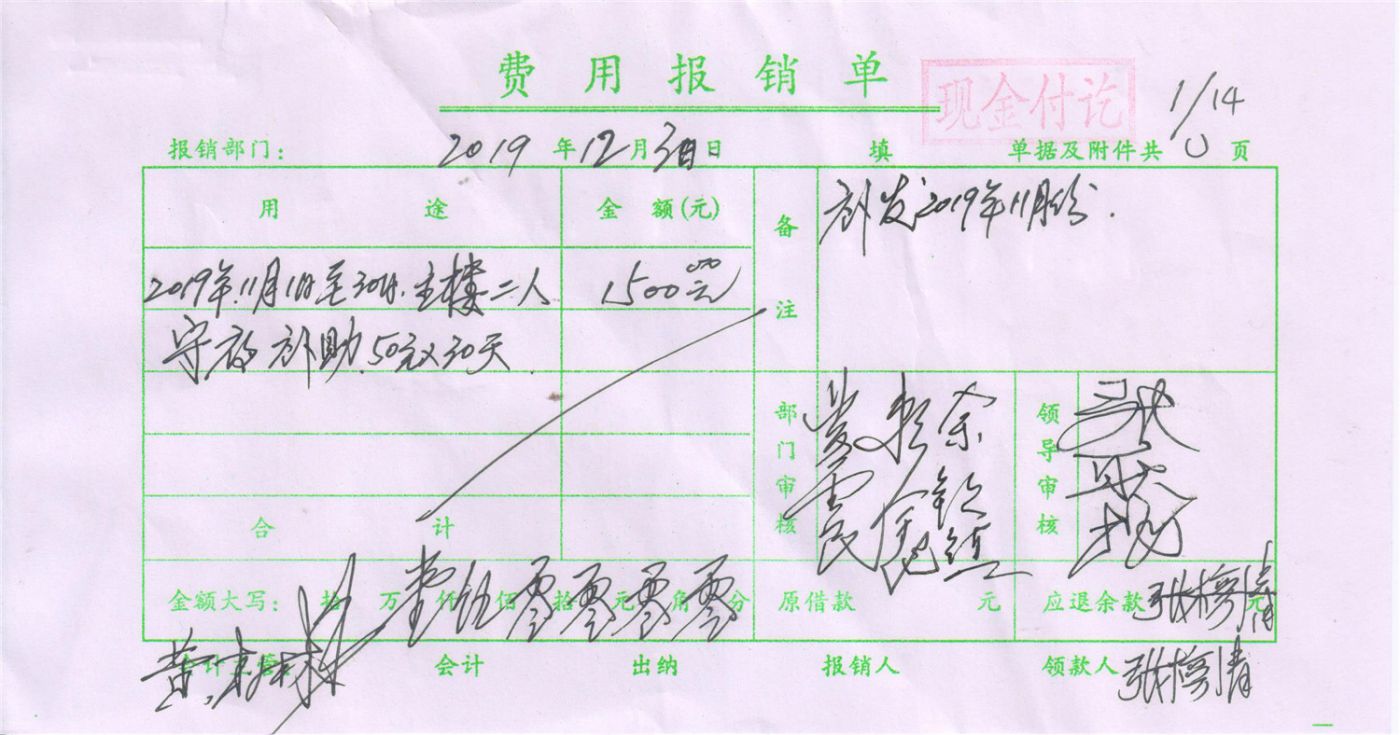 费用报销单
现金付讫
1/14
报销部门： 2019年12月30日 填 单据及附件共 0 页
用途 金额(元) 备注 补发2019年11月份.
2019年.11月1日至30日.主楼二人 1500元
守夜补助.50元×30天
部门审核 领导审核
合计
金额大写： 拾 万 壹仟 伍佰 零拾 零元 零角 零分 原借款 元 应退余款 元
会计 出纳 报销人 领款人